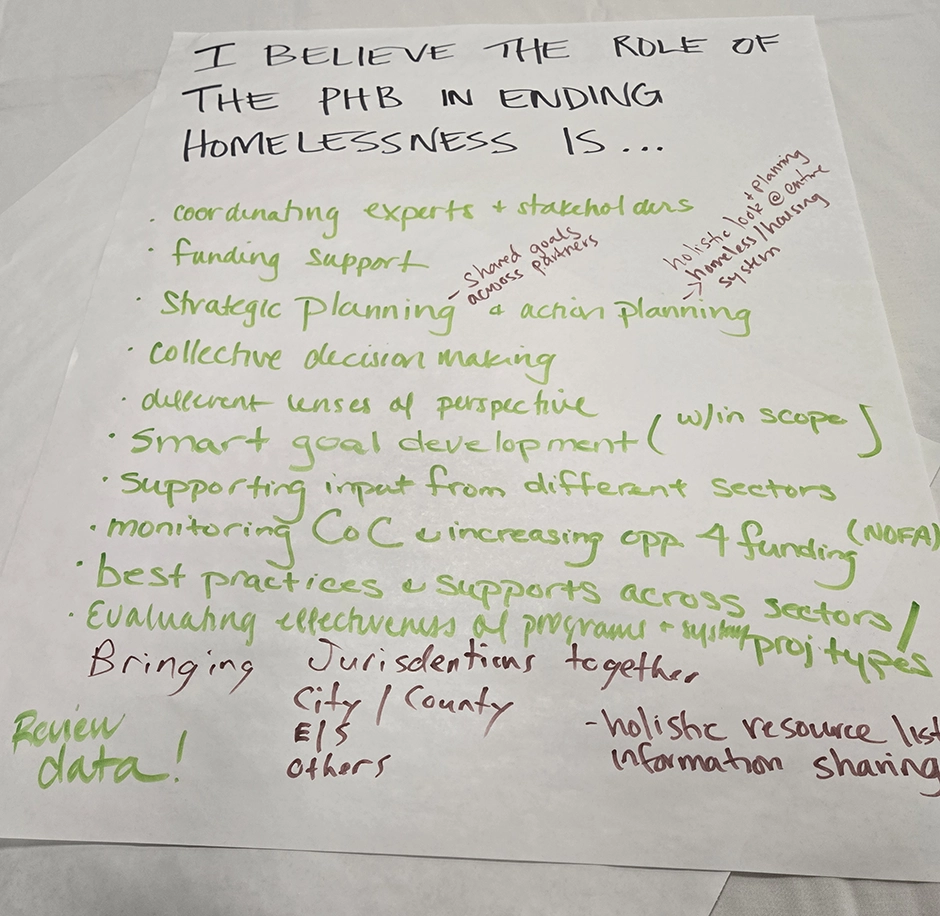 I BELIEVE THE ROLE OF
THE PHB IN ENDING
HOMELESSNESS IS...
· coordinating experts + stakeholders
· funding support
- Shared goals
across partners
holistic look + planning
@ entire
→ homeless/housing
system
· Strategic Planning & action planning
· collective decision making
· different lenses of perspective
· Smart goal development (w/in scope)
· Supporting input from different sectors
· monitoring CoC & increasing opp 4 funding (NOFA)
· best practices & supports across sectors/
proj types
· Evaluating effectiveness of programs + system
Bringing Jurisdentions together
City / County
E/S
others
Review
data!
- holistic resource list
information sharing